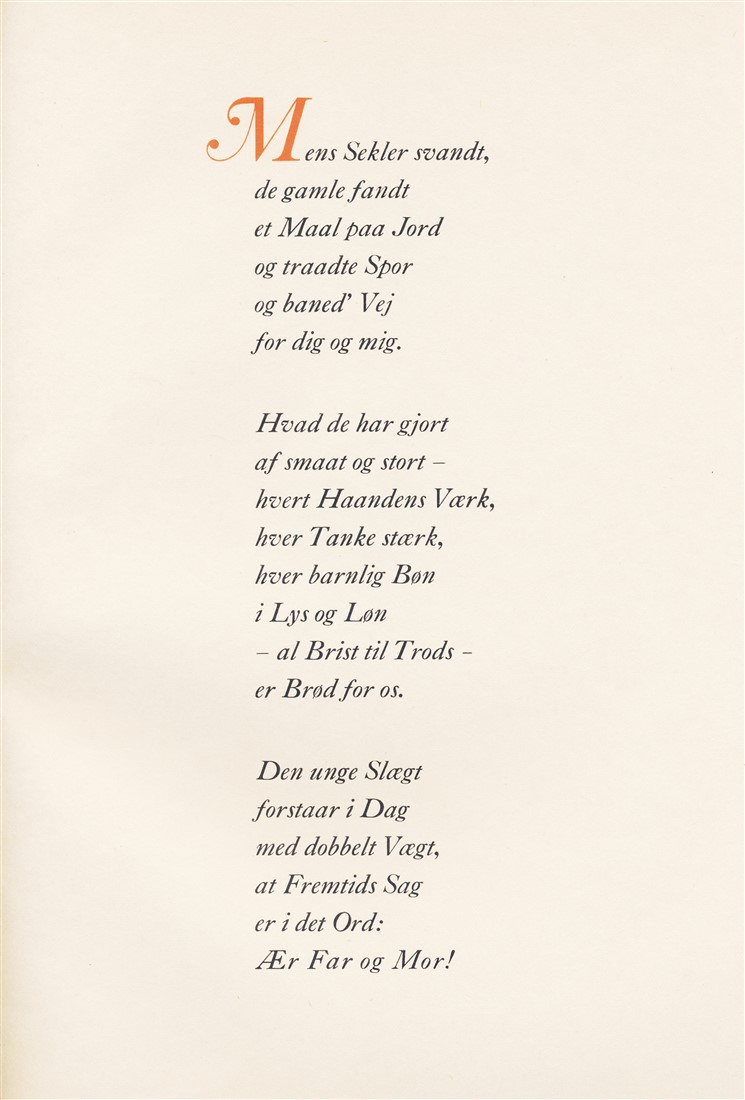 Mens Sekler svandt,
de gamle fandt
et Maal paa Jord
og traadte Spor
og baned' Vej
for dig og mig.
Hvad de har gjort
af smaat og stort –
hvert Haandens Værk,
hver Tanke stærk,
hver barnlig Bøn
i Lys og Løn
– al Brist til Trods –
er Brød for os.
Den unge Slægt
forstaar i Dag
med dobbelt Vægt,
at Fremtids Sag
er i det Ord:
Ær Far og Mor!